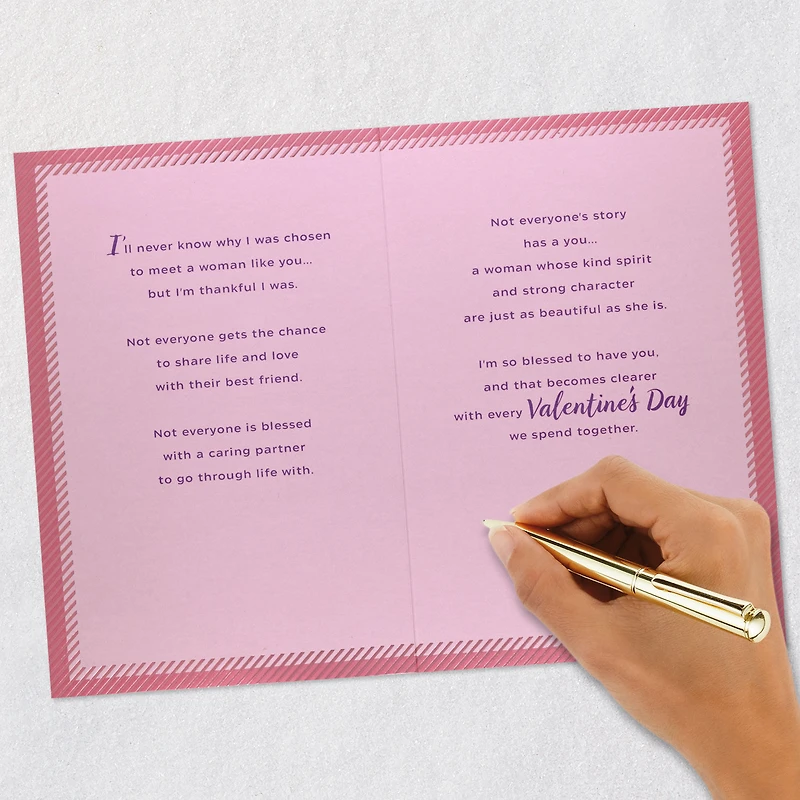 I'll never know why I was chosen
to meet a woman like you...
but I'm thankful I was.
Not everyone gets the chance
to share life and love
with their best friend.
Not everyone is blessed
with a caring partner
to go through life with.
Not everyone's story
has a you...
a woman whose kind spirit
and strong character
are just as beautiful as she is.
I'm so blessed to have you,
and that becomes clearer
with every Valentine's Day
we spend together.